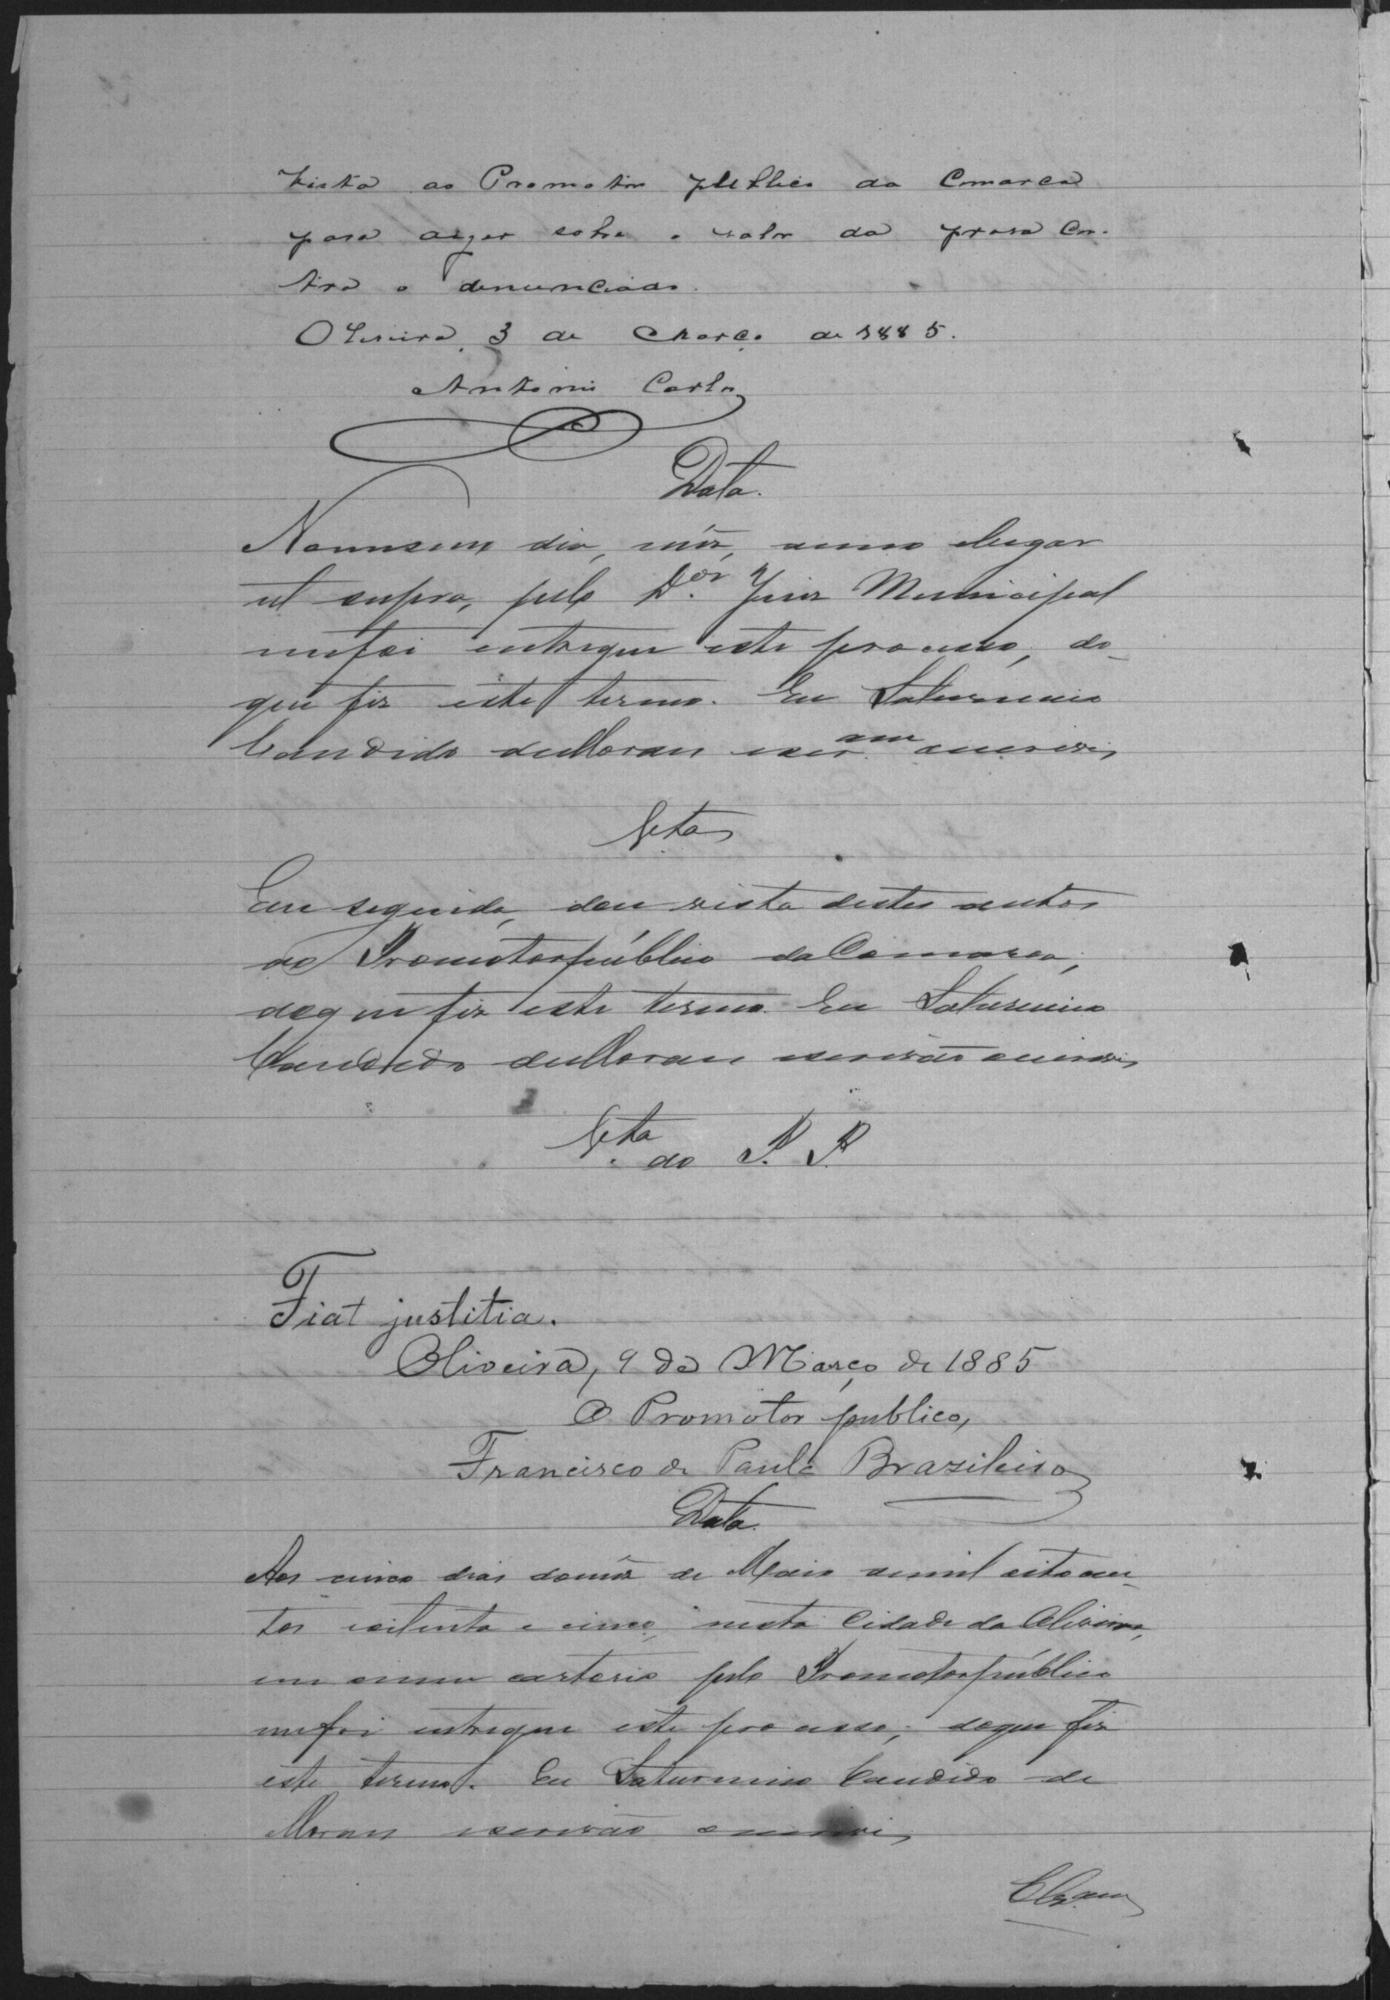 Vista ao Promotor publico da Comarca
para dizer sobre o valor da prova con-
tra o denunciado.
Oliveira, 3 de Março de 1885.
Antonio Carlos
Data.
No mesmo dia, mêz, anno e lugar
ut supra, pelo D.or Juiz Municipal
me foi entregue este processo, do
que fiz este termo. Eu Saturnino
Candido de Moraes escr.am o escrevi,
Vta
Em seguida, dou vista destes autos
ao Promotor público da Comarca,
do que fiz este termo. Eu Saturnino
Candido de Moraes escrivão o escrevi,
Vta ao P. P.
Fiat justitia.
Oliveira, 9 de Março de 1885
O Promotor publico,
Francisco de Paula Brazileiro
Data.
Aos cinco dias do mêz de Maio de mil oitocen-
tos e oitenta e cinco, nesta Cidade da Oliveira,
em o meu cartorio pelo Promotor público
me foi entregue este processo, do que fiz
este termo. Eu Saturnino Candido de
Moraes escrivão o escrevi,
Clz.am